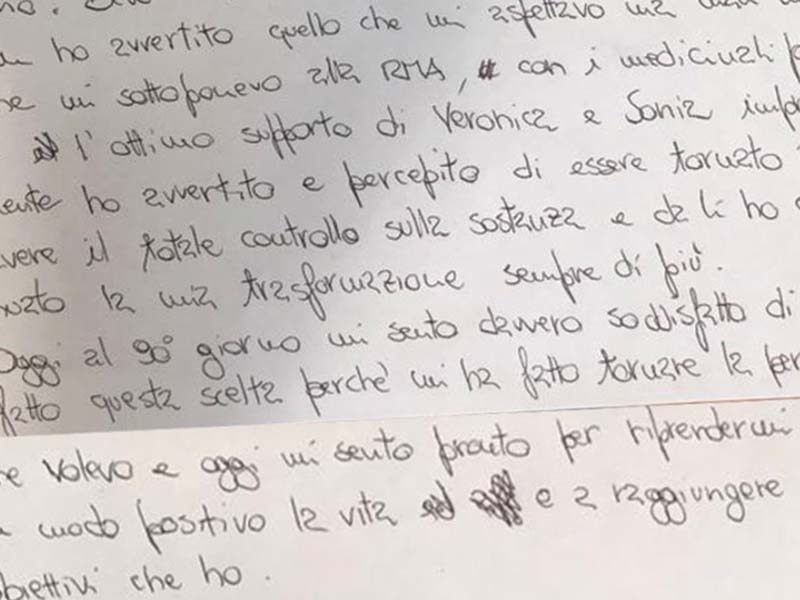 ho avvertito quello che mi aspettavo ma
mi sottoponevo alla RMA, con i medicinali
l'ottimo supporto di Veronica e Sonia
ho avvertito e percepito di essere tornato
vere il totale controllo sulla sostanza e da lì ho
la mia trasformazione sempre di più.
Oggi al 90° giorno mi sento davvero soddisfatto di
fatto questa scelta perchè mi ha fatto tornare la per
e volevo e oggi mi sento pronto per riprendermi
modo positivo la vita e a raggiungere
biettivi che ho.